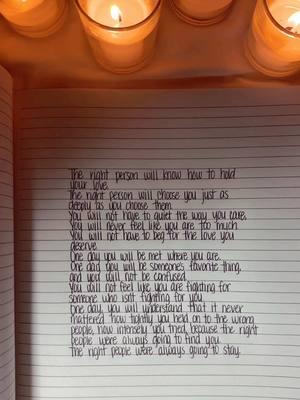 The right person will know how to hold
your love.
The right person will choose you just as
deeply as you choose them.
You will not have to quiet the way you care.
You will never feel like you are too much.
You will not have to beg for the love you
deserve.
One day you will be met where you are.
One day, you will be someone's favorite thing,
and you will not be confused.
You will not feel like you are fighting for
someone who isn't fighting for you.
One day, you will understand that it never
mattered how tightly you held on to the wrong
people, how intensely you tried, because the right
people were always going to find you.
The right people were always going to stay.